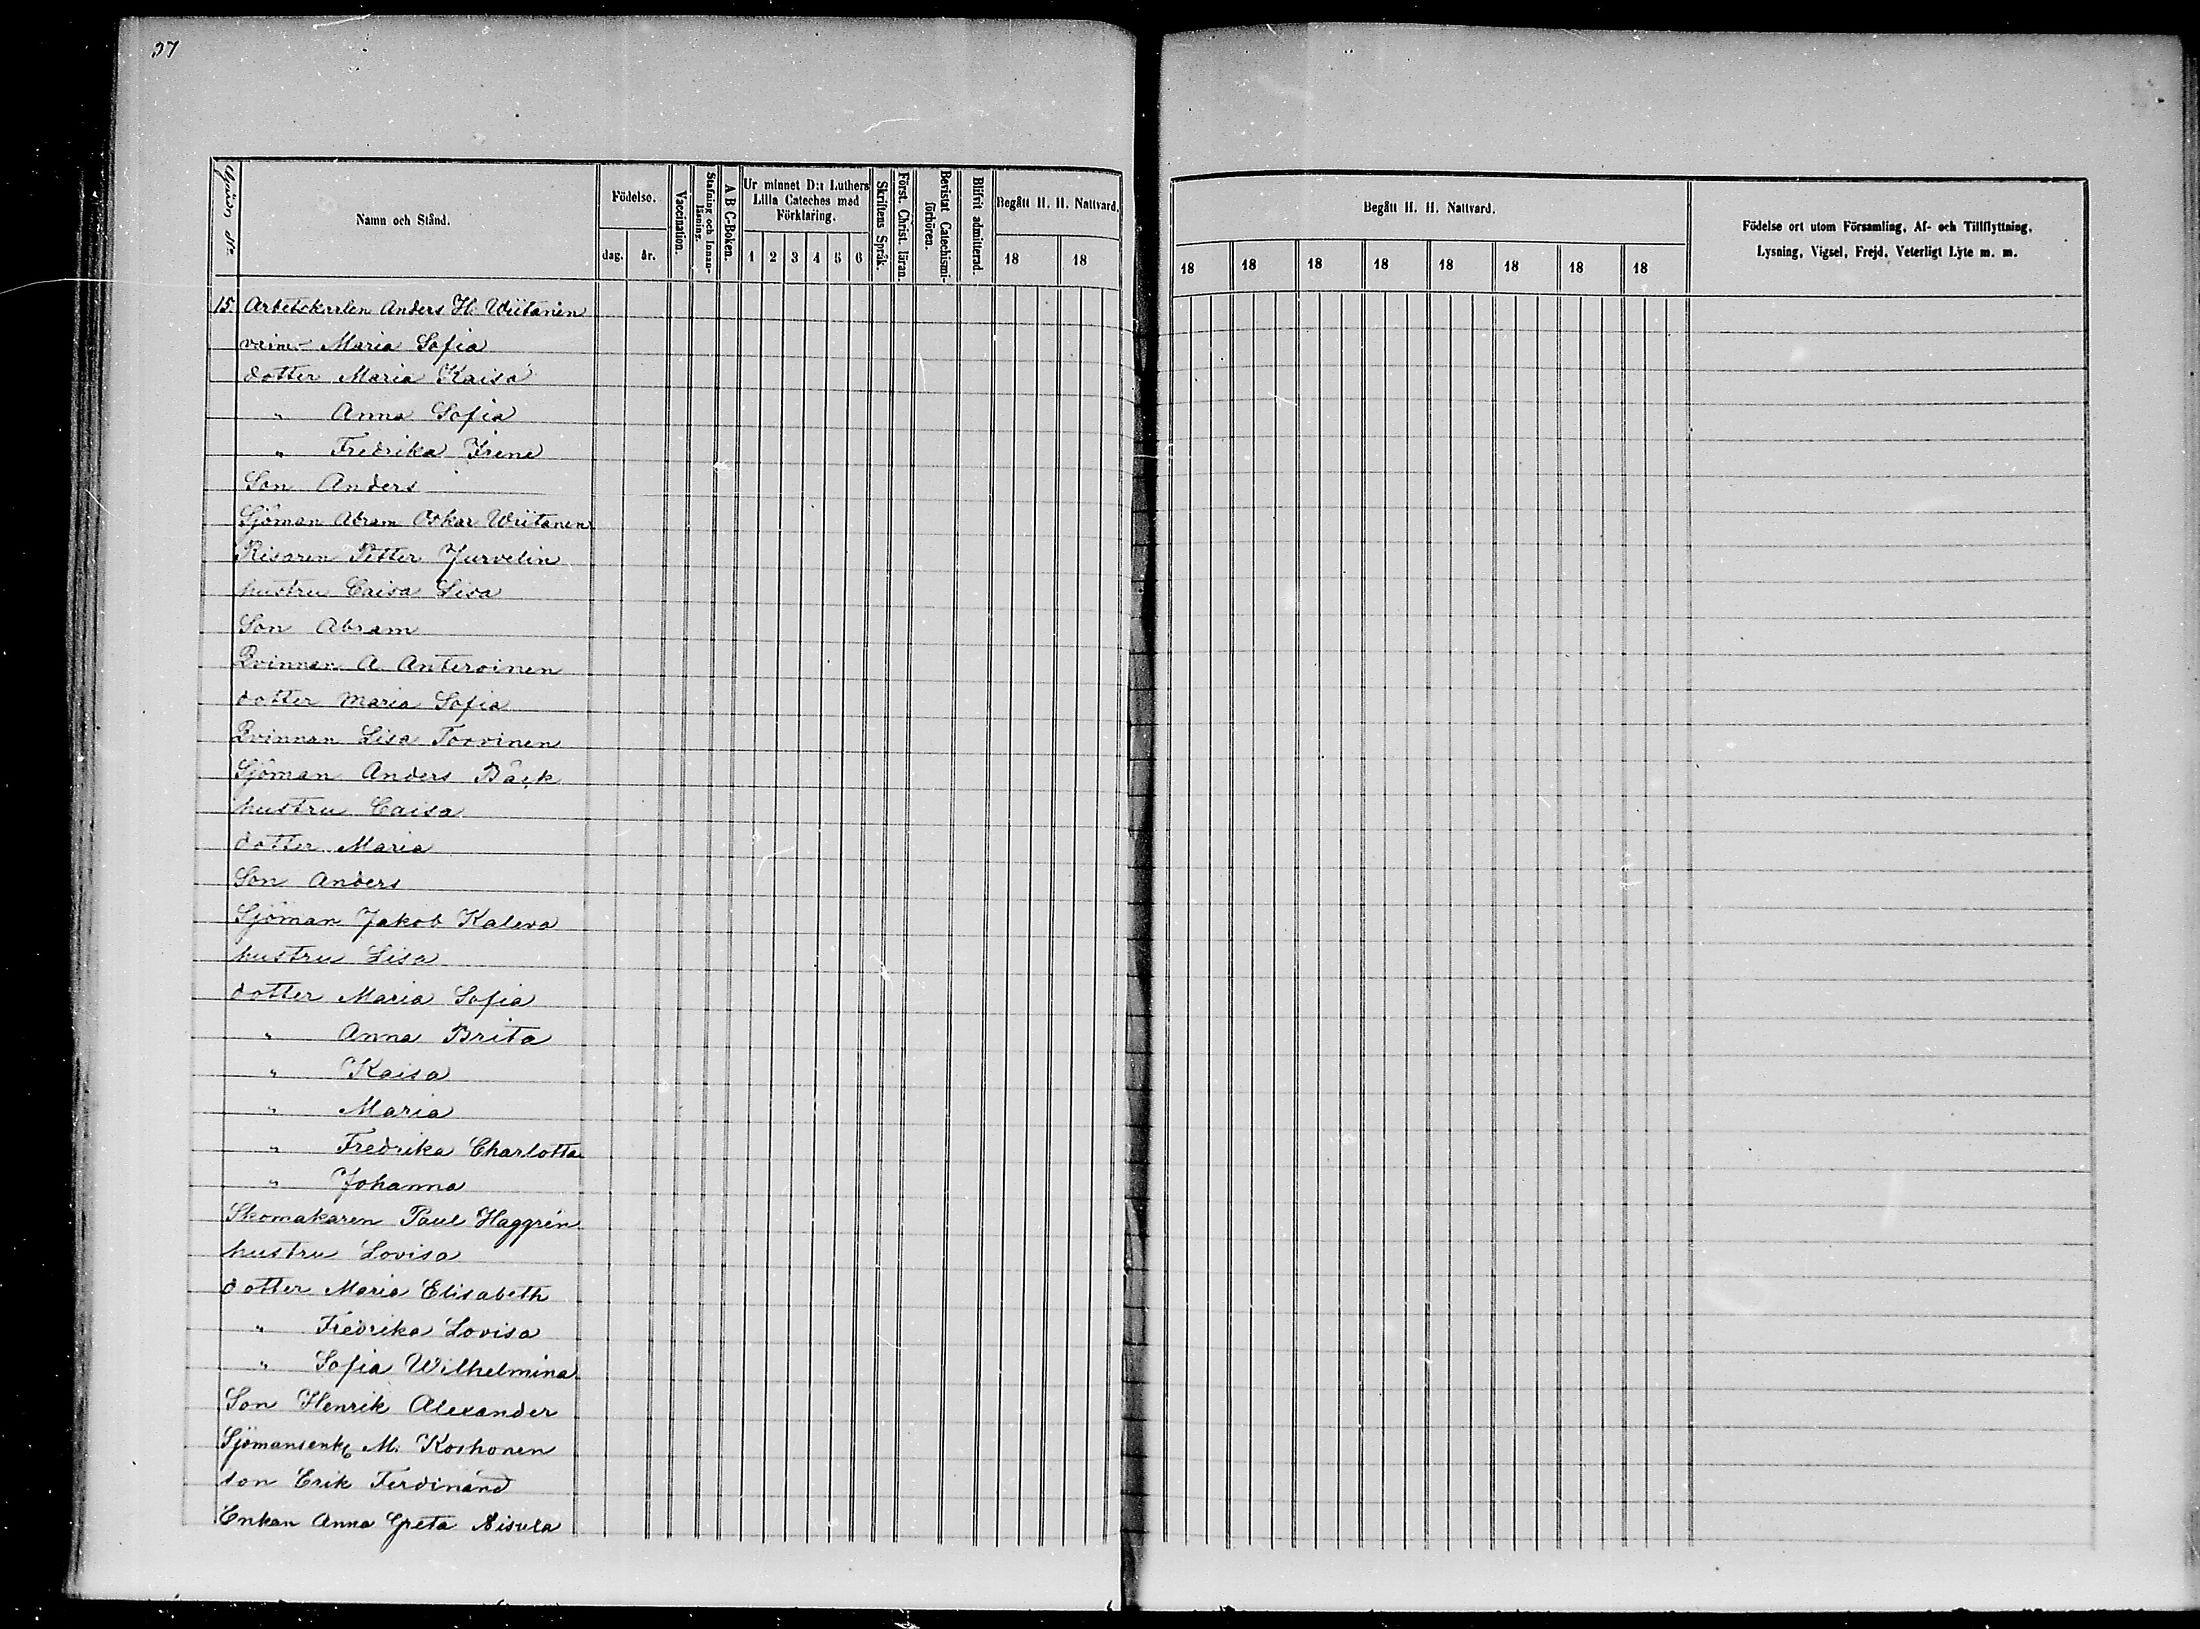 37
Gårds No
Namn och Stånd.
Födelse.
dag. år.
Vaccination.
Stafning och Innan-läsning.
A B C-Boken.
Ur minnet D:r Luthers Lilla Cateches med Förklaring.
1 2 3 4 5 6
Skriftens Språk.
Först. Christ. läran.
Bevistat Catechismi-förhören.
Blifvit admitterad.
Begått H. H. Nattvard.
18 18
Begått H. H. Nattvard.
18 18 18 18 18 18 18 18
Födelse ort utom Församling, Af- och Tillflyttning,
Lysning, Vigsel, Frejd, Veterligt Lyte m. m.
15. Arbetskarlen Anders H. Wiitanen
Maria Sofia
dotter Maria Kaisa
" Anna Sofia
" Fredrika Irene
Son Anders
Sjöman Abram Oskar Wiitanen
Petter Jurvelin
hustru Caisa Lisa
Son Abram
Qvinnan A Anteroinen
dotter Maria Sofia
Qvinnan Lisa Torvinen
Sjöman Anders Bäck
hustru Caisa
dotter Maria
Son Anders
Sjöman Jakob Kaleva
hustru Lisa
dotter Maria Sofia
" Anna Brita
" Kaisa
" Maria
" Fredrika Charlotta
" Johanna
Skomakaren Paul Haggrén
hustru Lovisa
dotter Maria Elisabeth
" Fredrika Lovisa
" Sofia Wilhelmina
Son Henrik Alexander
Sjömansenk M. Koskonen
son Erik Ferdinand
Enkan Anna Greta Nisula